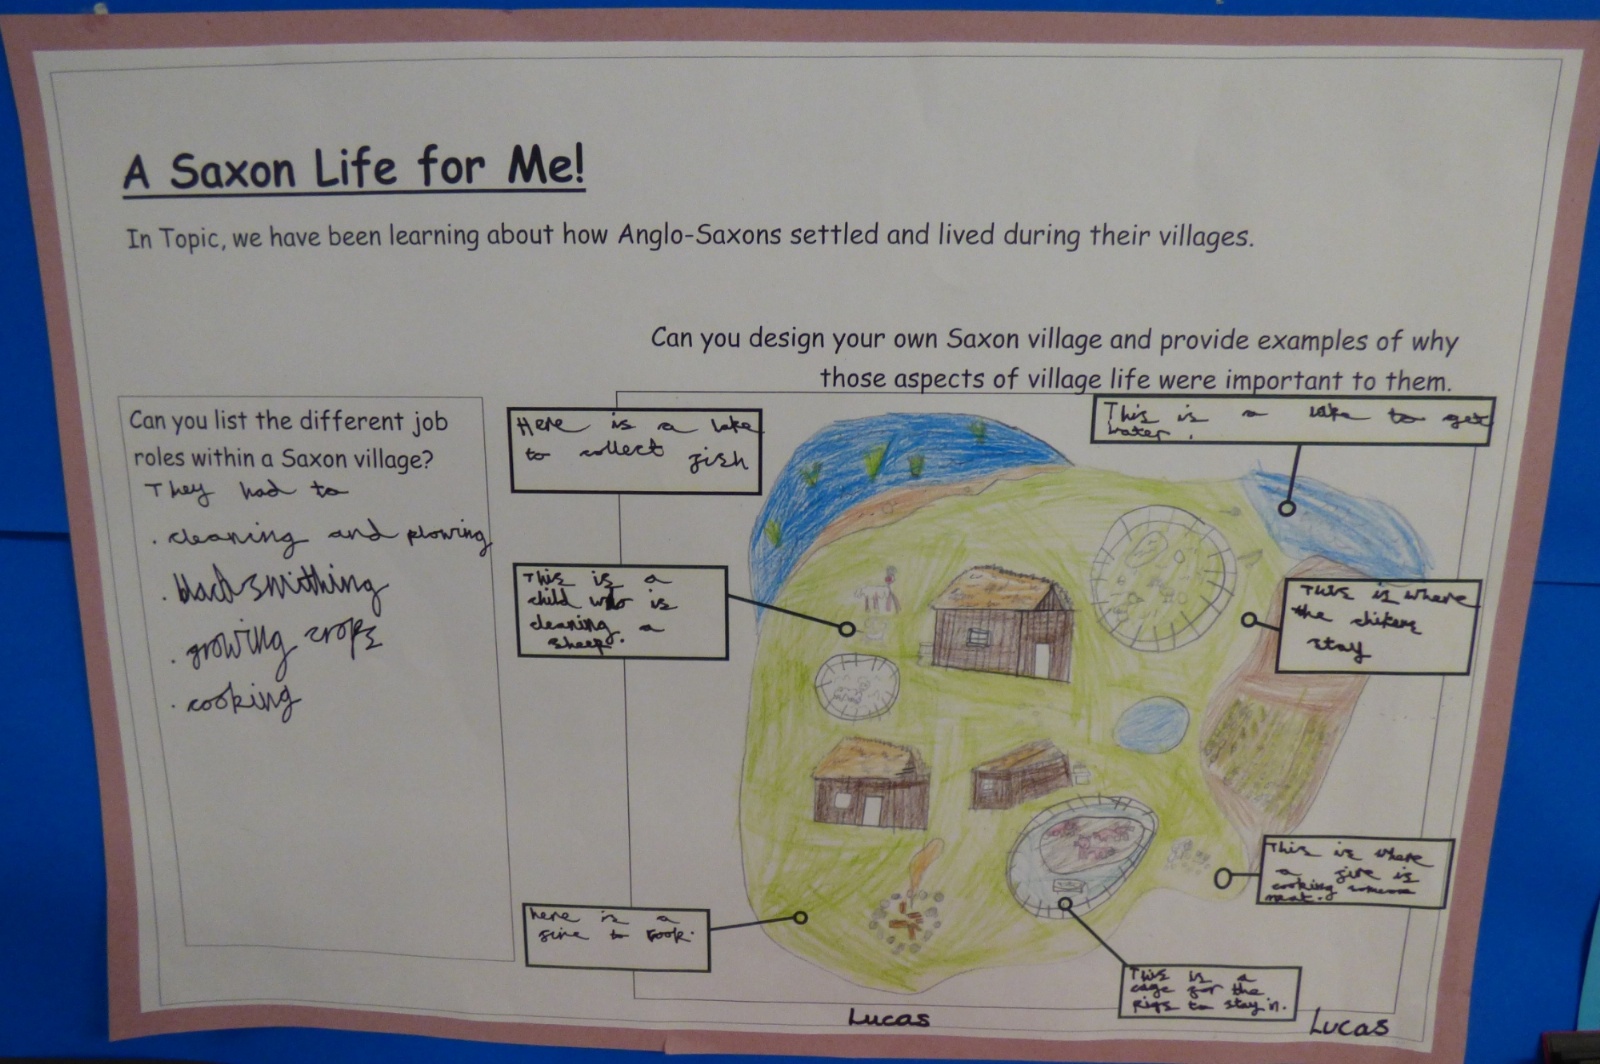 A Saxon Life for Me!
In Topic, we have been learning about how Anglo-Saxons settled and lived during their villages.
Can you design your own Saxon village and provide examples of why
those aspects of village life were important to them.
Can you list the different job
roles within a Saxon village?
They had to
. cleaning and plowing
. blacksmithing
. growing crops
. cooking
Here is a lake
to collect fish
This is a lake to get
water.
This is a
child who is
cleaning a
sheep.
This is where
the chikens
stay
here is a
fire to cook.
This is where
a fire is
cooking
meat.
This is a
cage for the
pigs to stay in.
Lucas
Lucas